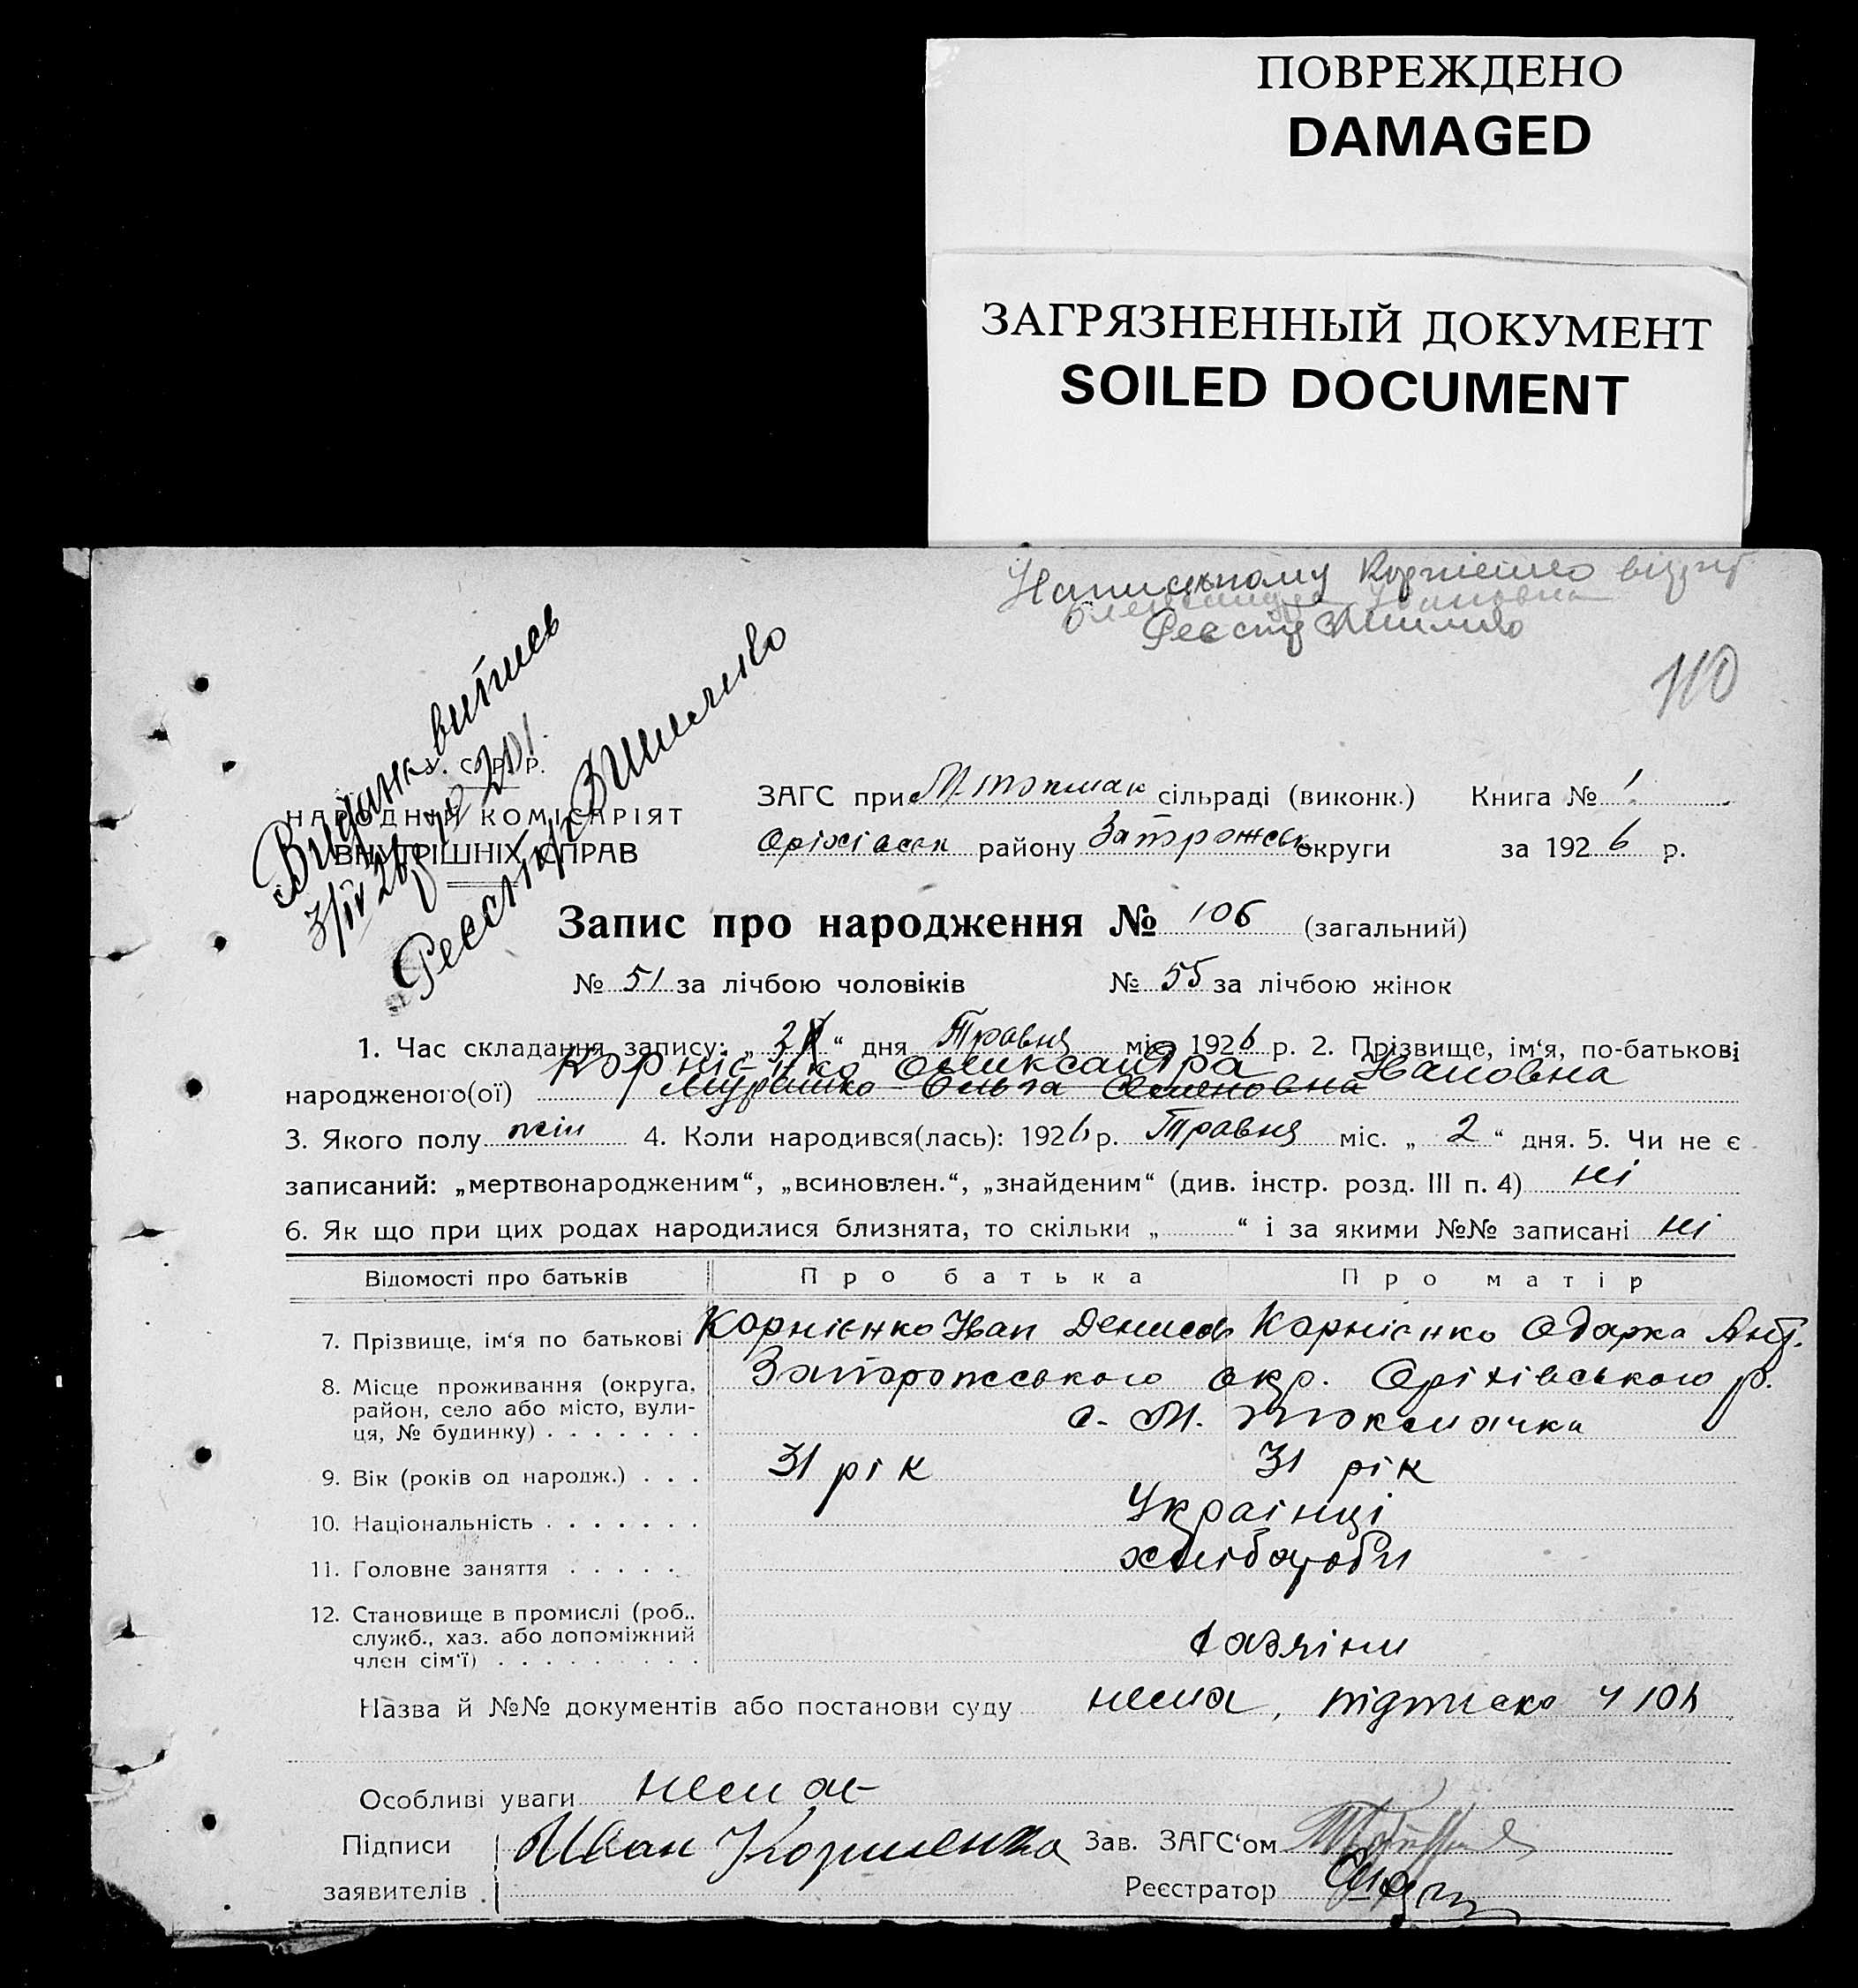 ПОВРЕЖДЕНО
DAMAGED
ЗАГРЯЗНЕННЫЙ ДОКУМЕНТ
SOILED DOCUMENT
Написаному Корнієнко
Олександра Івановна
110
Видан витись
3/IV 26
Реєстр
У. С. Р. Р.
НАРОДНИЙ КОМІСАРІЯТ
ВНУТРІШНІХ СПРАВ
ЗАГС при М-токмак сільраді (виконк.) Книга № 1
Оріхівськ району Запорожськ округи за 1926 р.
Запис про народження № 106 (загальний)
№ 51 за лічбою чоловіків № 55 за лічбою жінок
1. Час складання запису: „ “ дня Травня міс. 1926 р. 2. Прізвище, ім‘я, по-батькові
Корнієнко Олександра Івановна
народженого(ої) Ольга
3. Якого полу жін 4. Коли народився(лась): 1926 р. Травня міс. „ 2 “ дня. 5. Чи не є
записаний: „мертвонародженим“, „всиновлен.“, „знайденим“ (див. інстр. розд. III п. 4) ні
6. Як що при цих родах народилися близнята, то скільки „ “ і за якими №№ записані ні
Відомості про батьків Про батька Про матір
7. Прізвище, ім‘я по батькові Корнієнко Іван Денисов Корнієнко Одарка Ант.
8. Місце проживання (округа, Запорожського окр. Оріхівського р.
район, село або місто, вули- с. М. Токмачка
ця, № будинку) . . . . . . .
9. Вік (років од народж.) . . . 31 рік 31 рік
10. Національність . . . . . . . Українці
11. Головне заняття . . . . . хлібороби
12. Становище в промислі (роб.,
служб., хаз. або допоміжний хазяіни
член сім‘ї) . . . . . . . . .
Назва й №№ документів або постанови суду нема, підписка ч 104
Особливі уваги немає
Підписи Иван Корниенко Зав. ЗАГС‘ом
заявителів Реєстратор